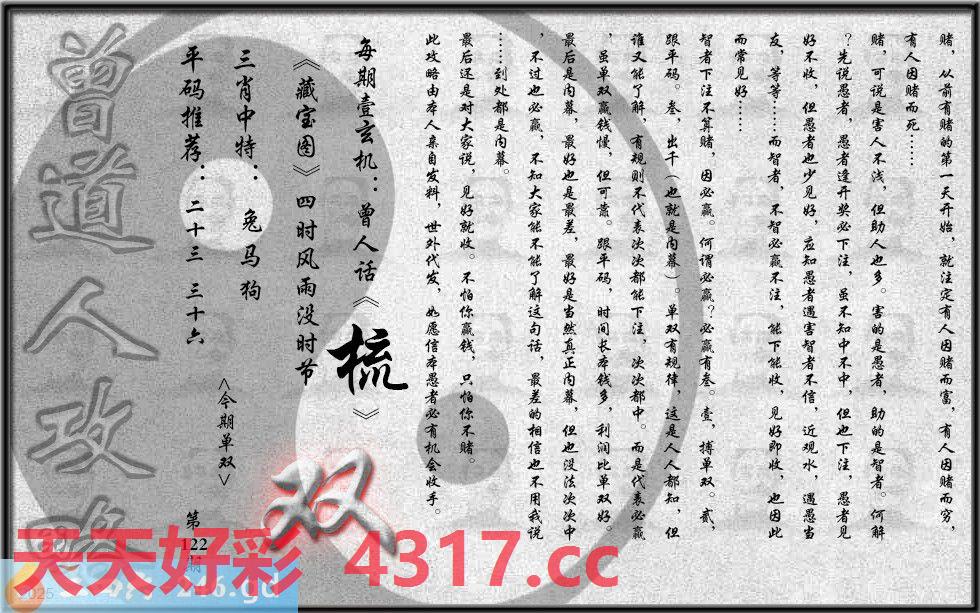 赌，从前有赌的第一天开始，就注定有人因赌而富，有人因赌而穷，
有人因赌而死……
赌，可说是害人不浅，但助人也多。害的是愚者，助的是智者。何解
？先说愚者，愚者逢开奖必下注，虽不知中不中，但也下注，愚者见
好不收，但愚者也少见好，应知愚者遇害智者不信，近观水，遇愚当
友，等等……而智者，不智必赢不注，能下能收，见好即收，也因此
而常见好……
智者下注不算赌，因必赢。何谓必赢？必赢有叁。壹，搏单双。贰，
跟平码。叁，出千（也就是内幕）。单双有规律，这是人人都知，但
谁又能了解，有规则不代表次次都能下注，次次都中。而是代表必赢
，虽单双赢钱慢，但可靠。跟平码，时间长本钱多，利润比单双好。
最后是内幕，最好也是最差，最好是当然真正内幕，但也没法次次中
，不过也必赢，不知大家能不能了解这句话，最差的相信也不用我说
……到处都是内幕。
最后还是对大家说，见好就收。不怕你赢钱，只怕你不赌。
此攻略由本人亲自发料，世外代发，如愿信本愚者必有机会收手。
每期壹玄机：曾人话《梳》
《藏宝图》四时风雨没时节
三肖中特：兔马狗
平码推荐：二十三 三十六
<今期单双>
双
第122期
曾道人攻略
天天好彩 4317.cc
2025